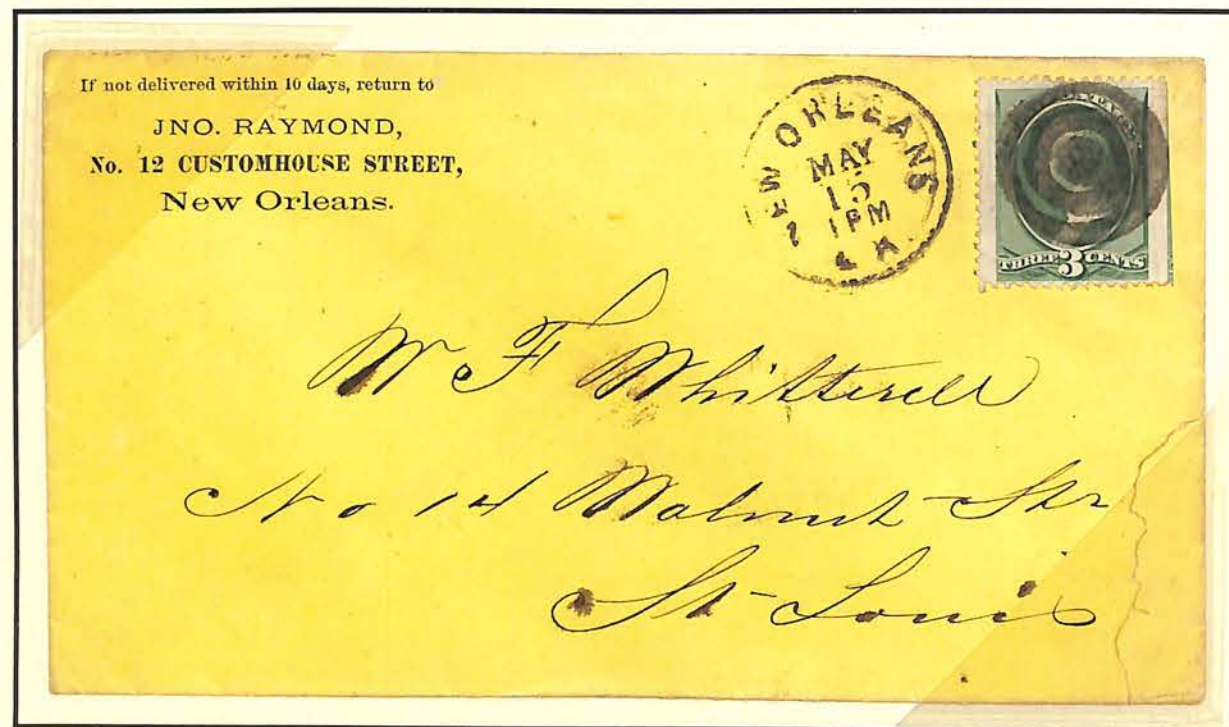 If not delivered within 10 days, return to
JNO. RAYMOND,
No. 12 CUSTOMHOUSE STREET,
New Orleans.
NEW ORLEANS
MAY
15
1 PM
LA
THREE 3 CENTS
W F Whitterell
No 14 Walnut Str
St Louis